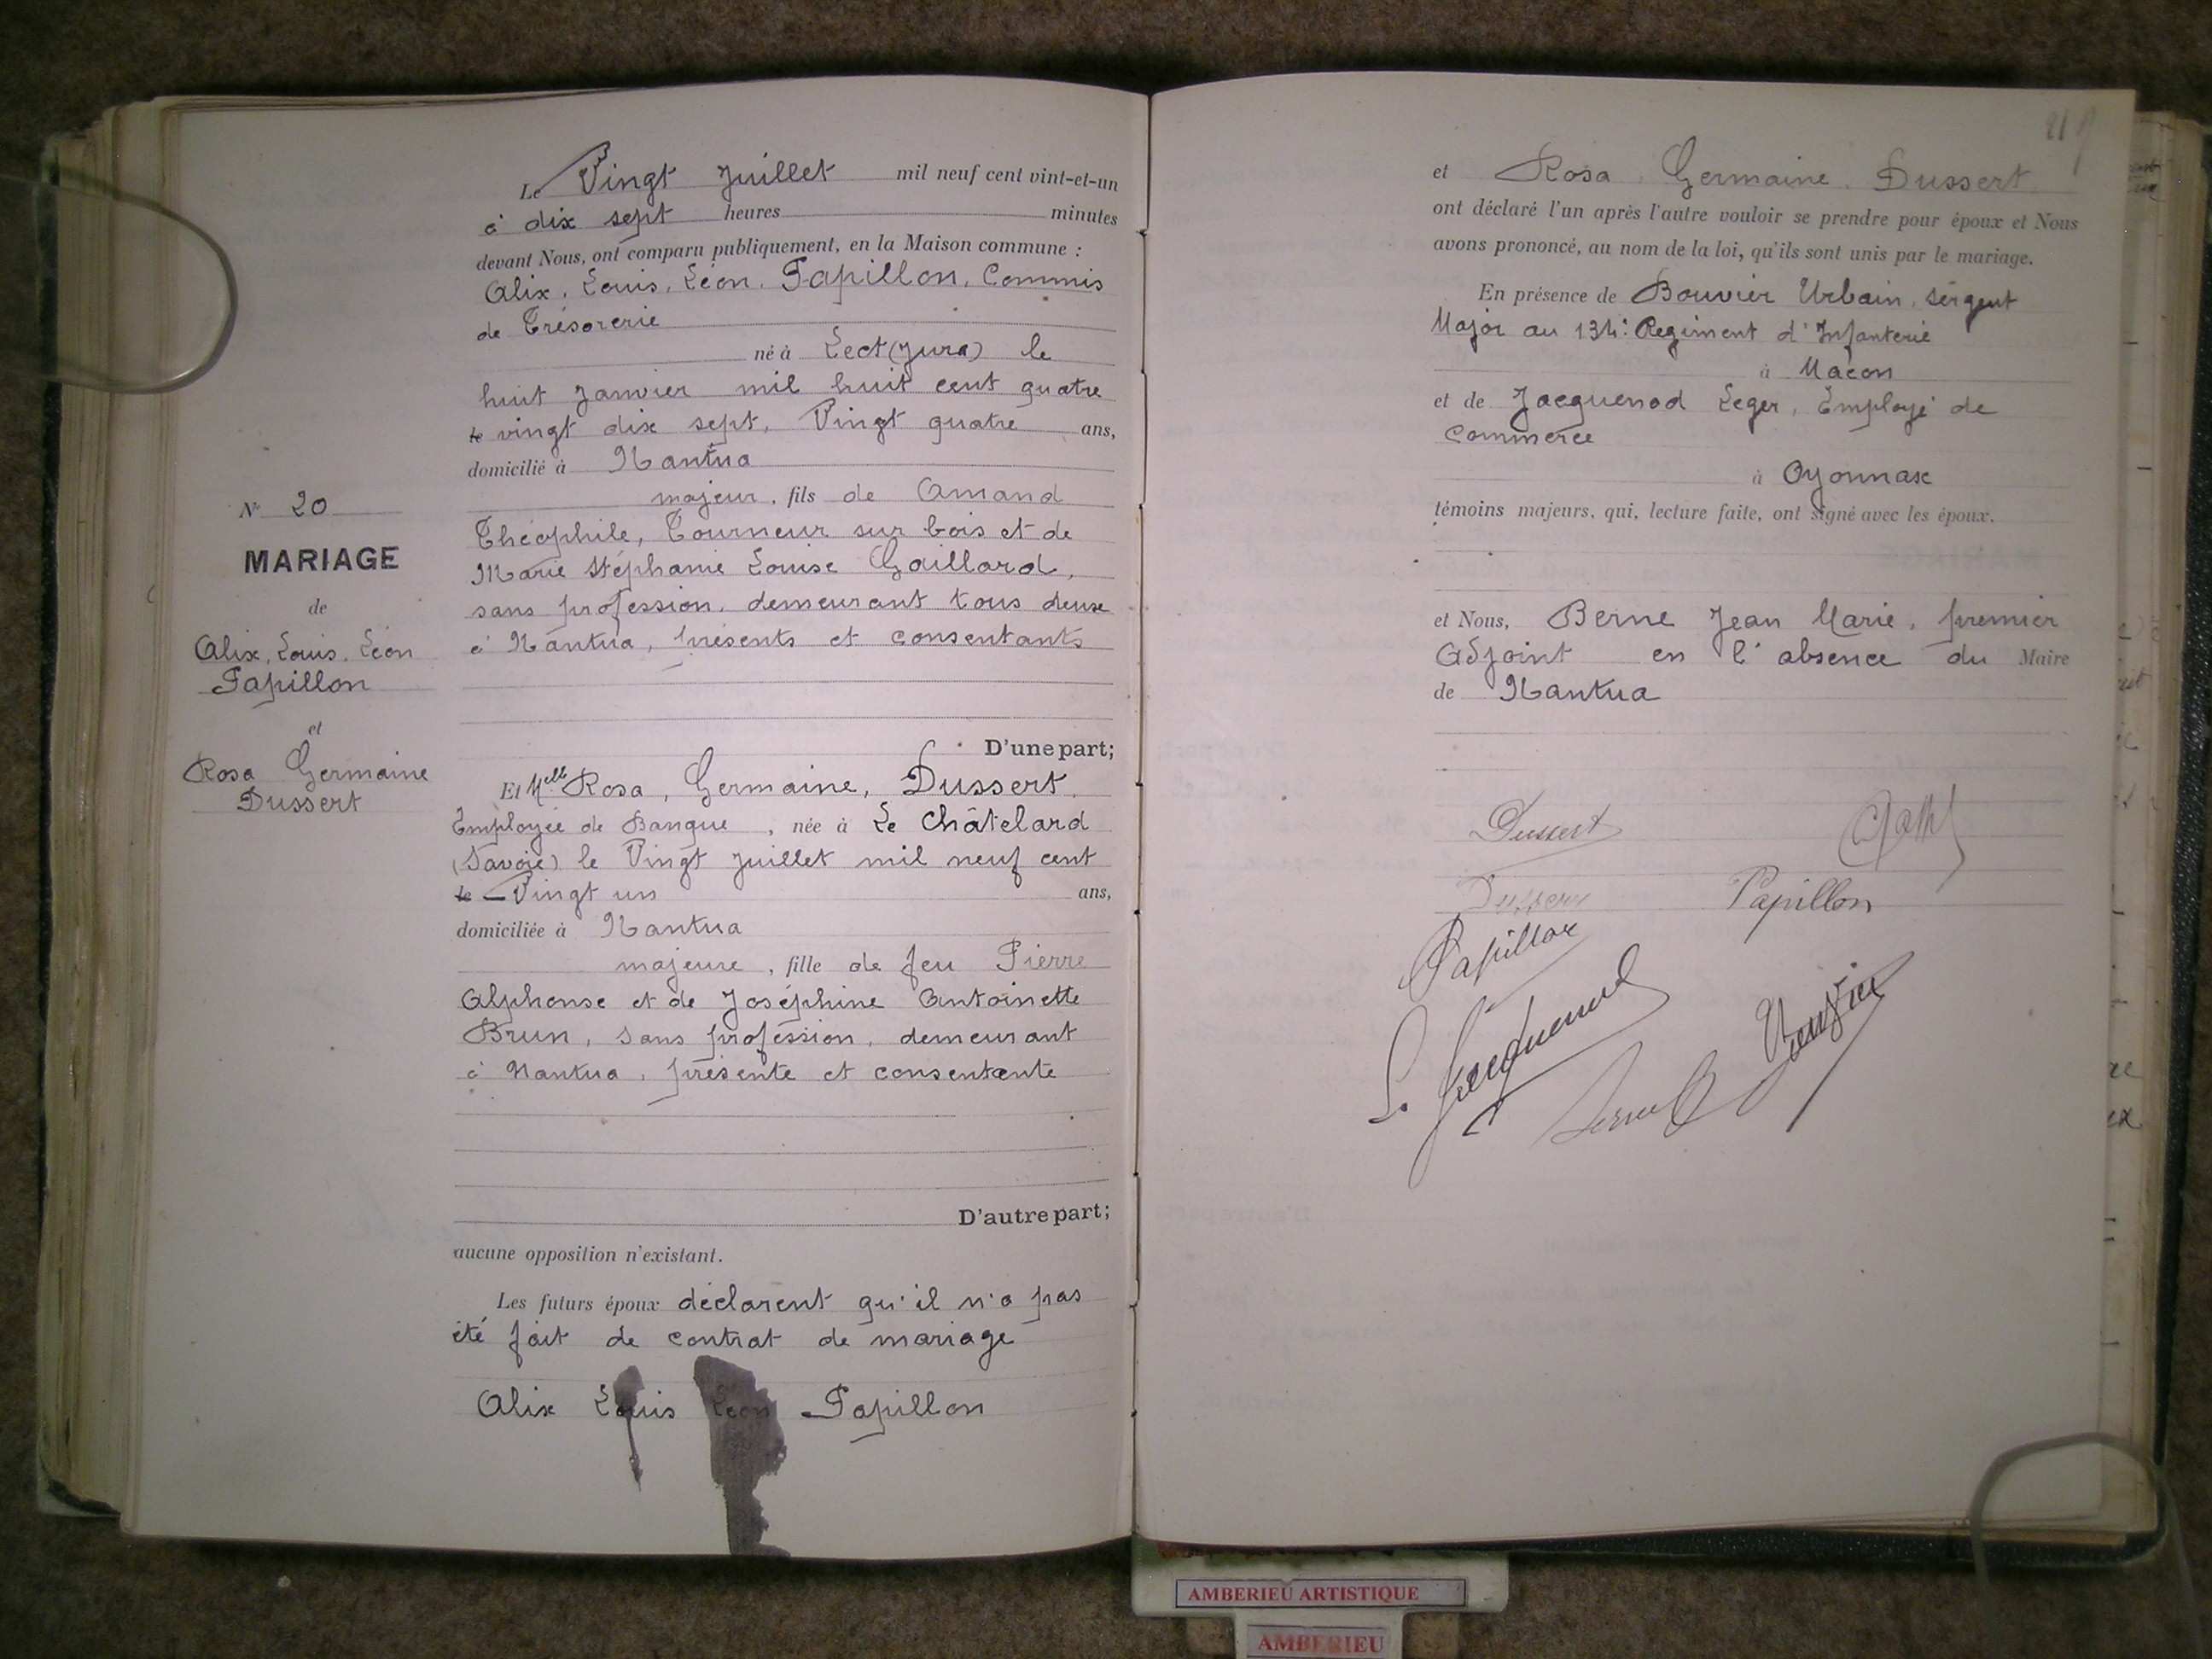 Le Vingt Juillet mil neuf cent vint-et-un
à dix sept heures minutes
devant Nous, ont comparu publiquement, en la Maison commune :
Alix, Louis, Léon, Papillon, Commis
de Trésorerie
né à Lect (Jura) le
huit Janvier mil huit cent quatre
le vingt dix sept, Vingt quatre ans,
domicilié à Nantua
majeur, fils de Amand
Théophile, Tourneur sur bois et de
Marie Stéphanie Louise Gaillard,
sans profession, demeurant tous deux
à Nantua, présents et consentants
N° 20
MARIAGE
de
Alix, Louis, Léon
Papillon
et
Rosa Germaine
Dussert
D'une part;
Et Melle Rosa, Germaine, Dussert,
Employée de Banque, née à Le Châtelard
(Savoie) le Vingt Juillet mil neuf cent
le Vingt un ans,
domiciliée à Nantua
majeure, fille de feu Pierre
Alphonse et de Joséphine Antoinette
Brun, sans profession, demeurant
à Nantua, présente et consentante
D'autre part;
aucune opposition n'existant.
Les futurs époux déclarent qu'il n'a pas
été fait de contrat de mariage
Alix Louis Léon Papillon
et Rosa Germaine Dussert
ont déclaré l'un après l'autre vouloir se prendre pour époux et Nous
avons prononcé, au nom de la loi, qu'ils sont unis par le mariage.
En présence de Bouvier Urbain, sergent
Major au 134e Regiment d'Infanterie
à Macon
et de Jacquenod Leger, Employé de
Commerce
à Oyonnax
témoins majeurs, qui, lecture faite, ont signé avec les époux.
et Nous, Berne Jean Marie, premier
Adjoint en l'absence du Maire
de Nantua
Dussert
Dussert Papillon
Papillon
L. Jacquenod Bouvier
Berne
AMBERIEU ARTISTIQUE
AMBERIEU